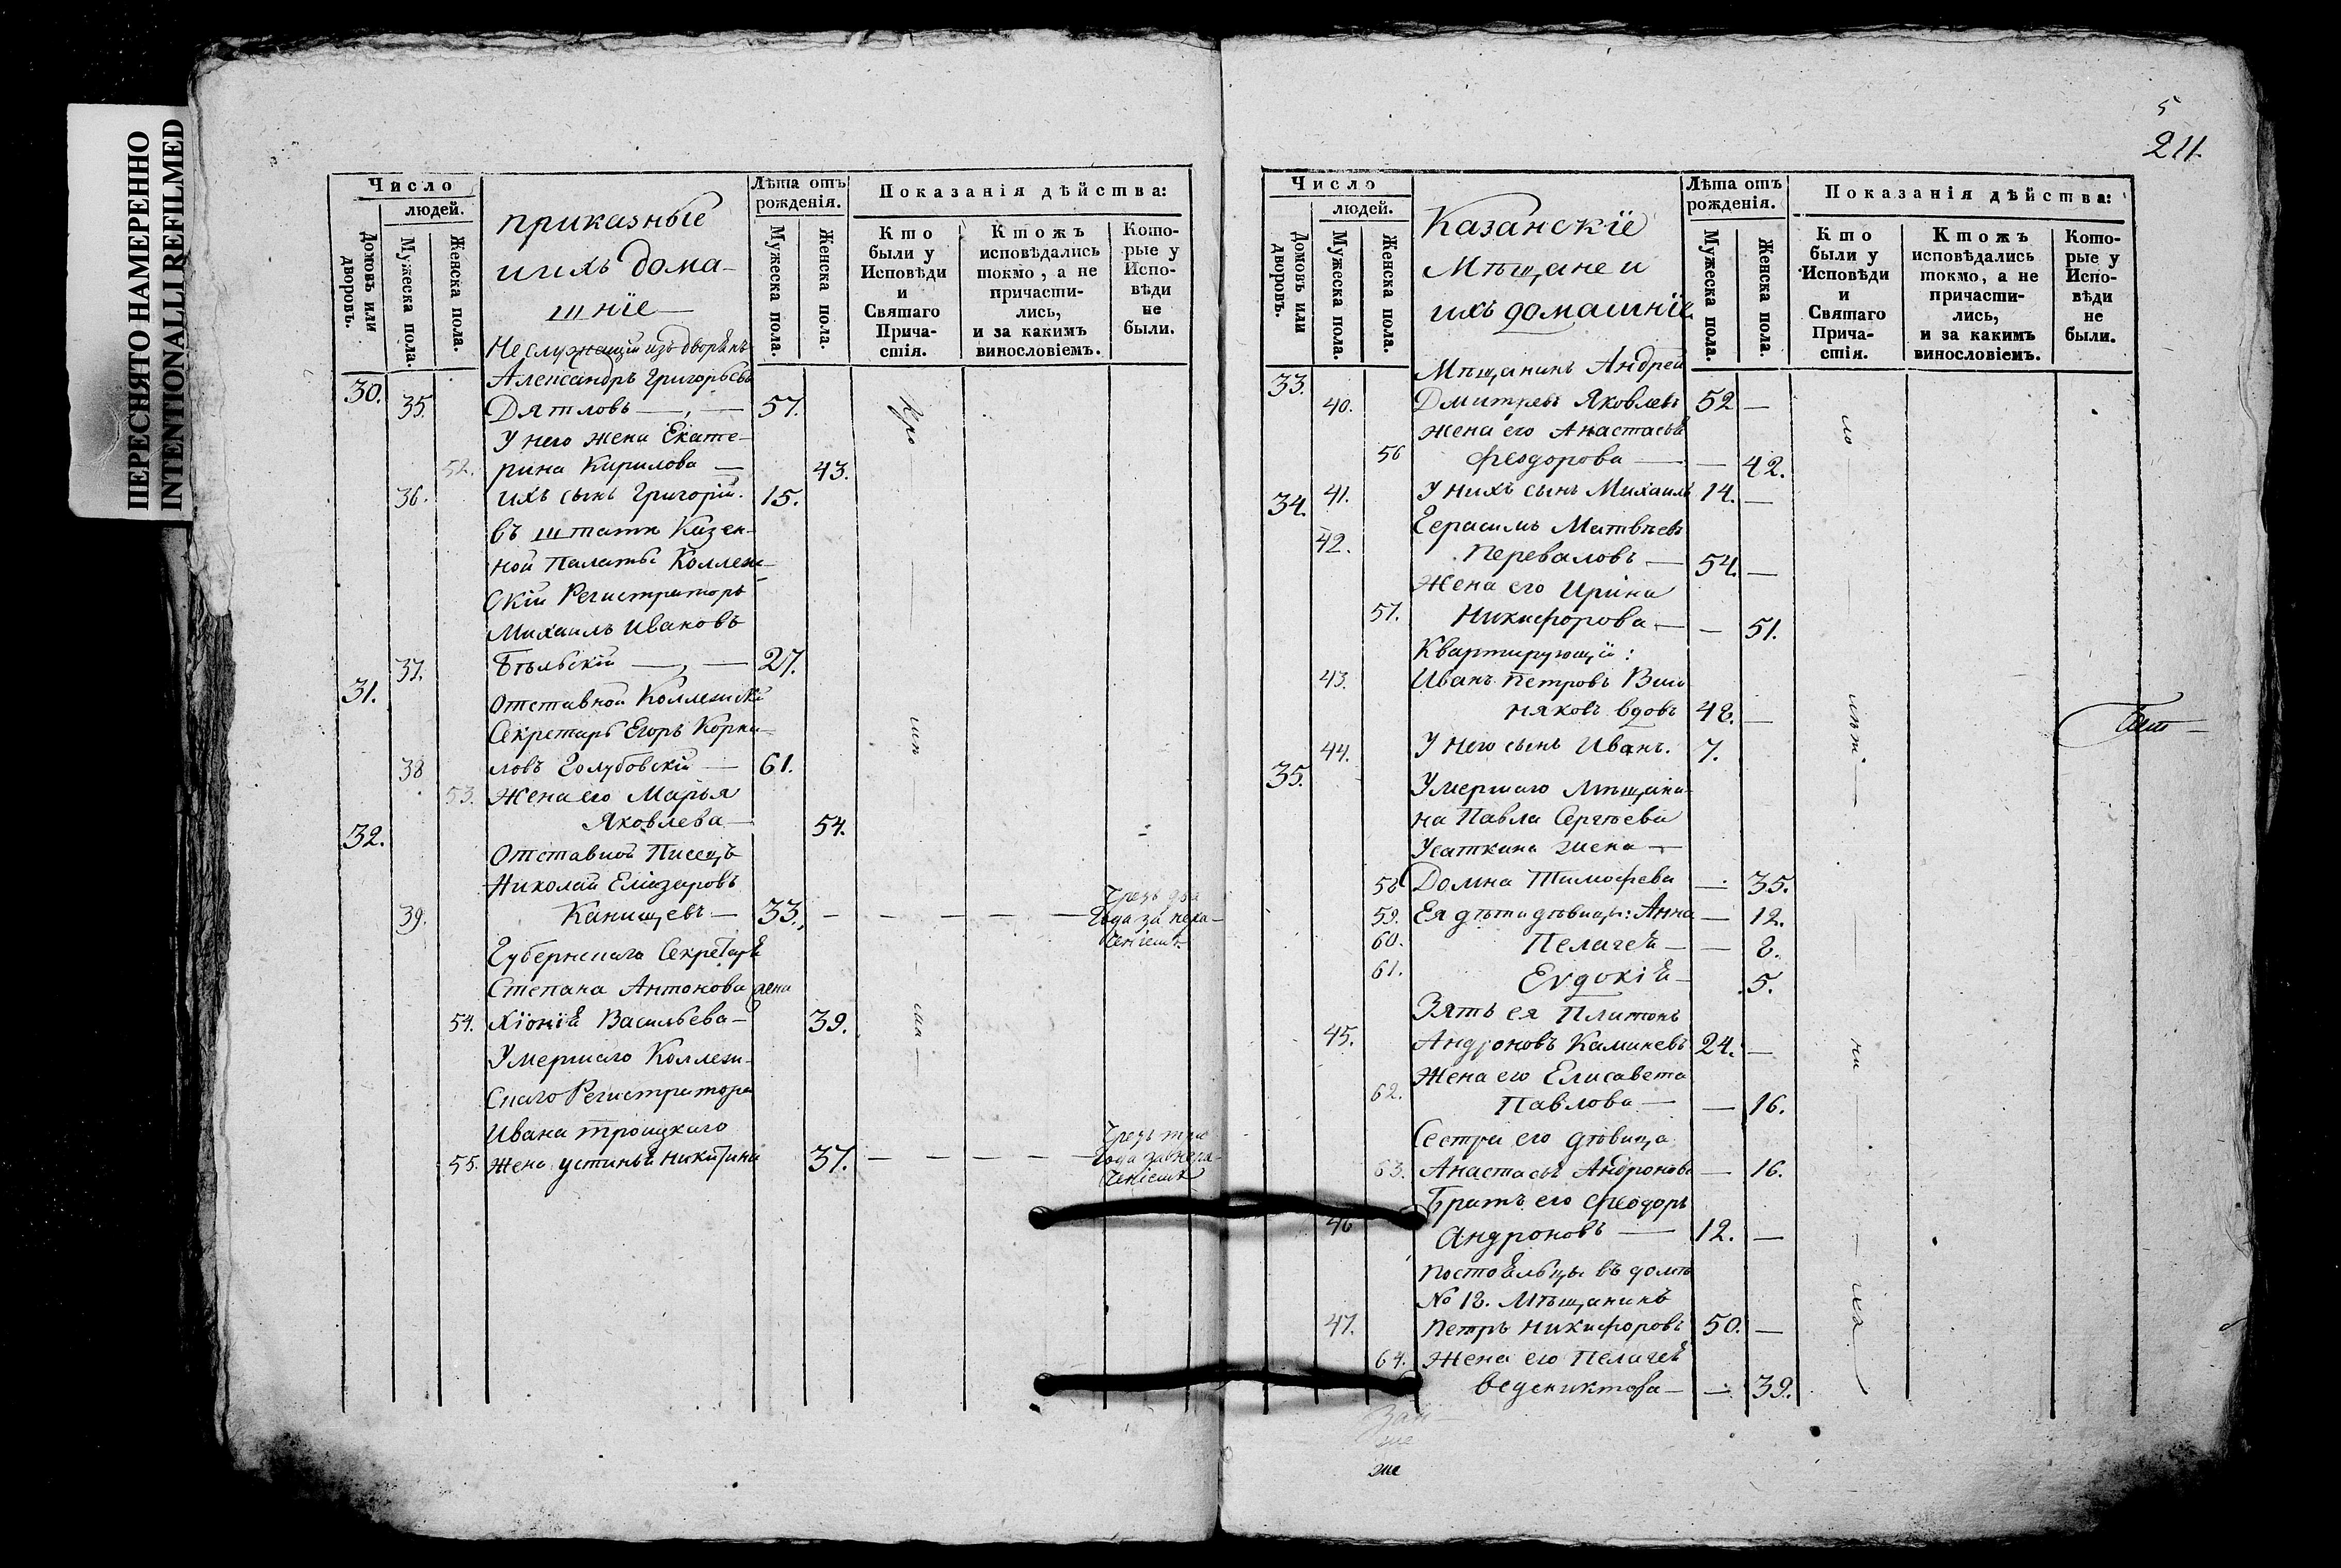 ПЕРЕСНЯТО НАМЕРЕННО
INTENTIONALLI REFILMED
Число
людей.
Домовъ или дворовъ.
Мужеска пола.
Женска пола.
приказные
и ихъ дома-
шніе
Лѣта отъ рожденія.
Мужеска пола.
Женска пола.
Показанія дѣйства:
Кто были у Исповѣди и Святаго Прича-стія.
Ктожъ исповѣдались токмо, а не причасти-лись, и за какимъ винословіемъ.
Кото-рые у Испо-вѣди не были.
Неслужащій изъ дворянъ
30. Александръ Григорьевъ
35. Дятловъ — 57.
У него жена Екате-
52. рина Кирилова — 43.
36. ихъ сынъ Григорій. 15.
въ штатѣ Казен-
ной Палаты Коллеж-
скій Регистраторъ
Михаилъ Ивановъ
37. Бѣльскій — 27.
31. Отставной Коллежскій
Секретарь Егоръ Корни-
38 ловъ Голубовскій — 61.
53. Жена его Марья
Яковлева — 54.
32. Отставной Писецъ
Николай Елиазаровъ
39. Канищевъ — 33. — — — — — Чрезъ два
года за нера-
деніемъ
Губернскаго Секретаря
Степана Антонова жена
54. Хіонія Васильева — 39.
Умершаго Коллеж-
скаго Регистратора
Ивана Троицкаго
55. жена Устинья Никитина 37. — — — — — Чрезъ три
года за нера-
деніемъ
5
211.
Число
людей.
Домовъ или дворовъ.
Мужеска пола.
Женска пола.
Казанскіе
Мѣщане и
ихъ домашніе
Лѣта отъ рожденія.
Мужеска пола.
Женска пола.
Показанія дѣйства:
Кто были у Исповѣди и Святаго Прича-стія.
Ктожъ исповѣдались токмо, а не причасти-лись, и за какимъ винословіемъ.
Кото-рые у Испо-вѣди не были.
33. Мѣщанинъ Андрей
40. Дмитревъ Яковлевъ 52 —
Жена его Анастасья
56 Феодорова — — 42.
41. У нихъ сынъ Михаилъ 14. —
34. Герасимъ Матвѣевъ
42. Переваловъ — 54. —
Жена его Ирина
57. Никифорова — — 51.
Квартирующій:
43. Иванъ Петровъ Виш
няковъ вдовъ 48. —
44. У него сынъ Иванъ. 7.
35. Умершаго мѣщани-
на Павла Сергѣева
Усаткина жена —
58 Домна Тимофева — 35.
59. Ея дѣти дѣвицы: Анна — 12.
60. Пелагея — — 8.
61. Еvдокія — 5.
Зять ея Платонъ
45. Андроновъ Каминевъ 24. —
Жена его Елисавета
62. Павлова — — 16.
Сестра его дѣвица
63. Анастасья Андронова — 16.
Братъ его Феодоръ
46 Андроновъ — 12. —
Постояльцы въ домѣ
№ 18. Мѣщанинъ
47. Петръ Никифоровъ 50. —
64. Жена его Пелагея
Ведениктова — — 39.